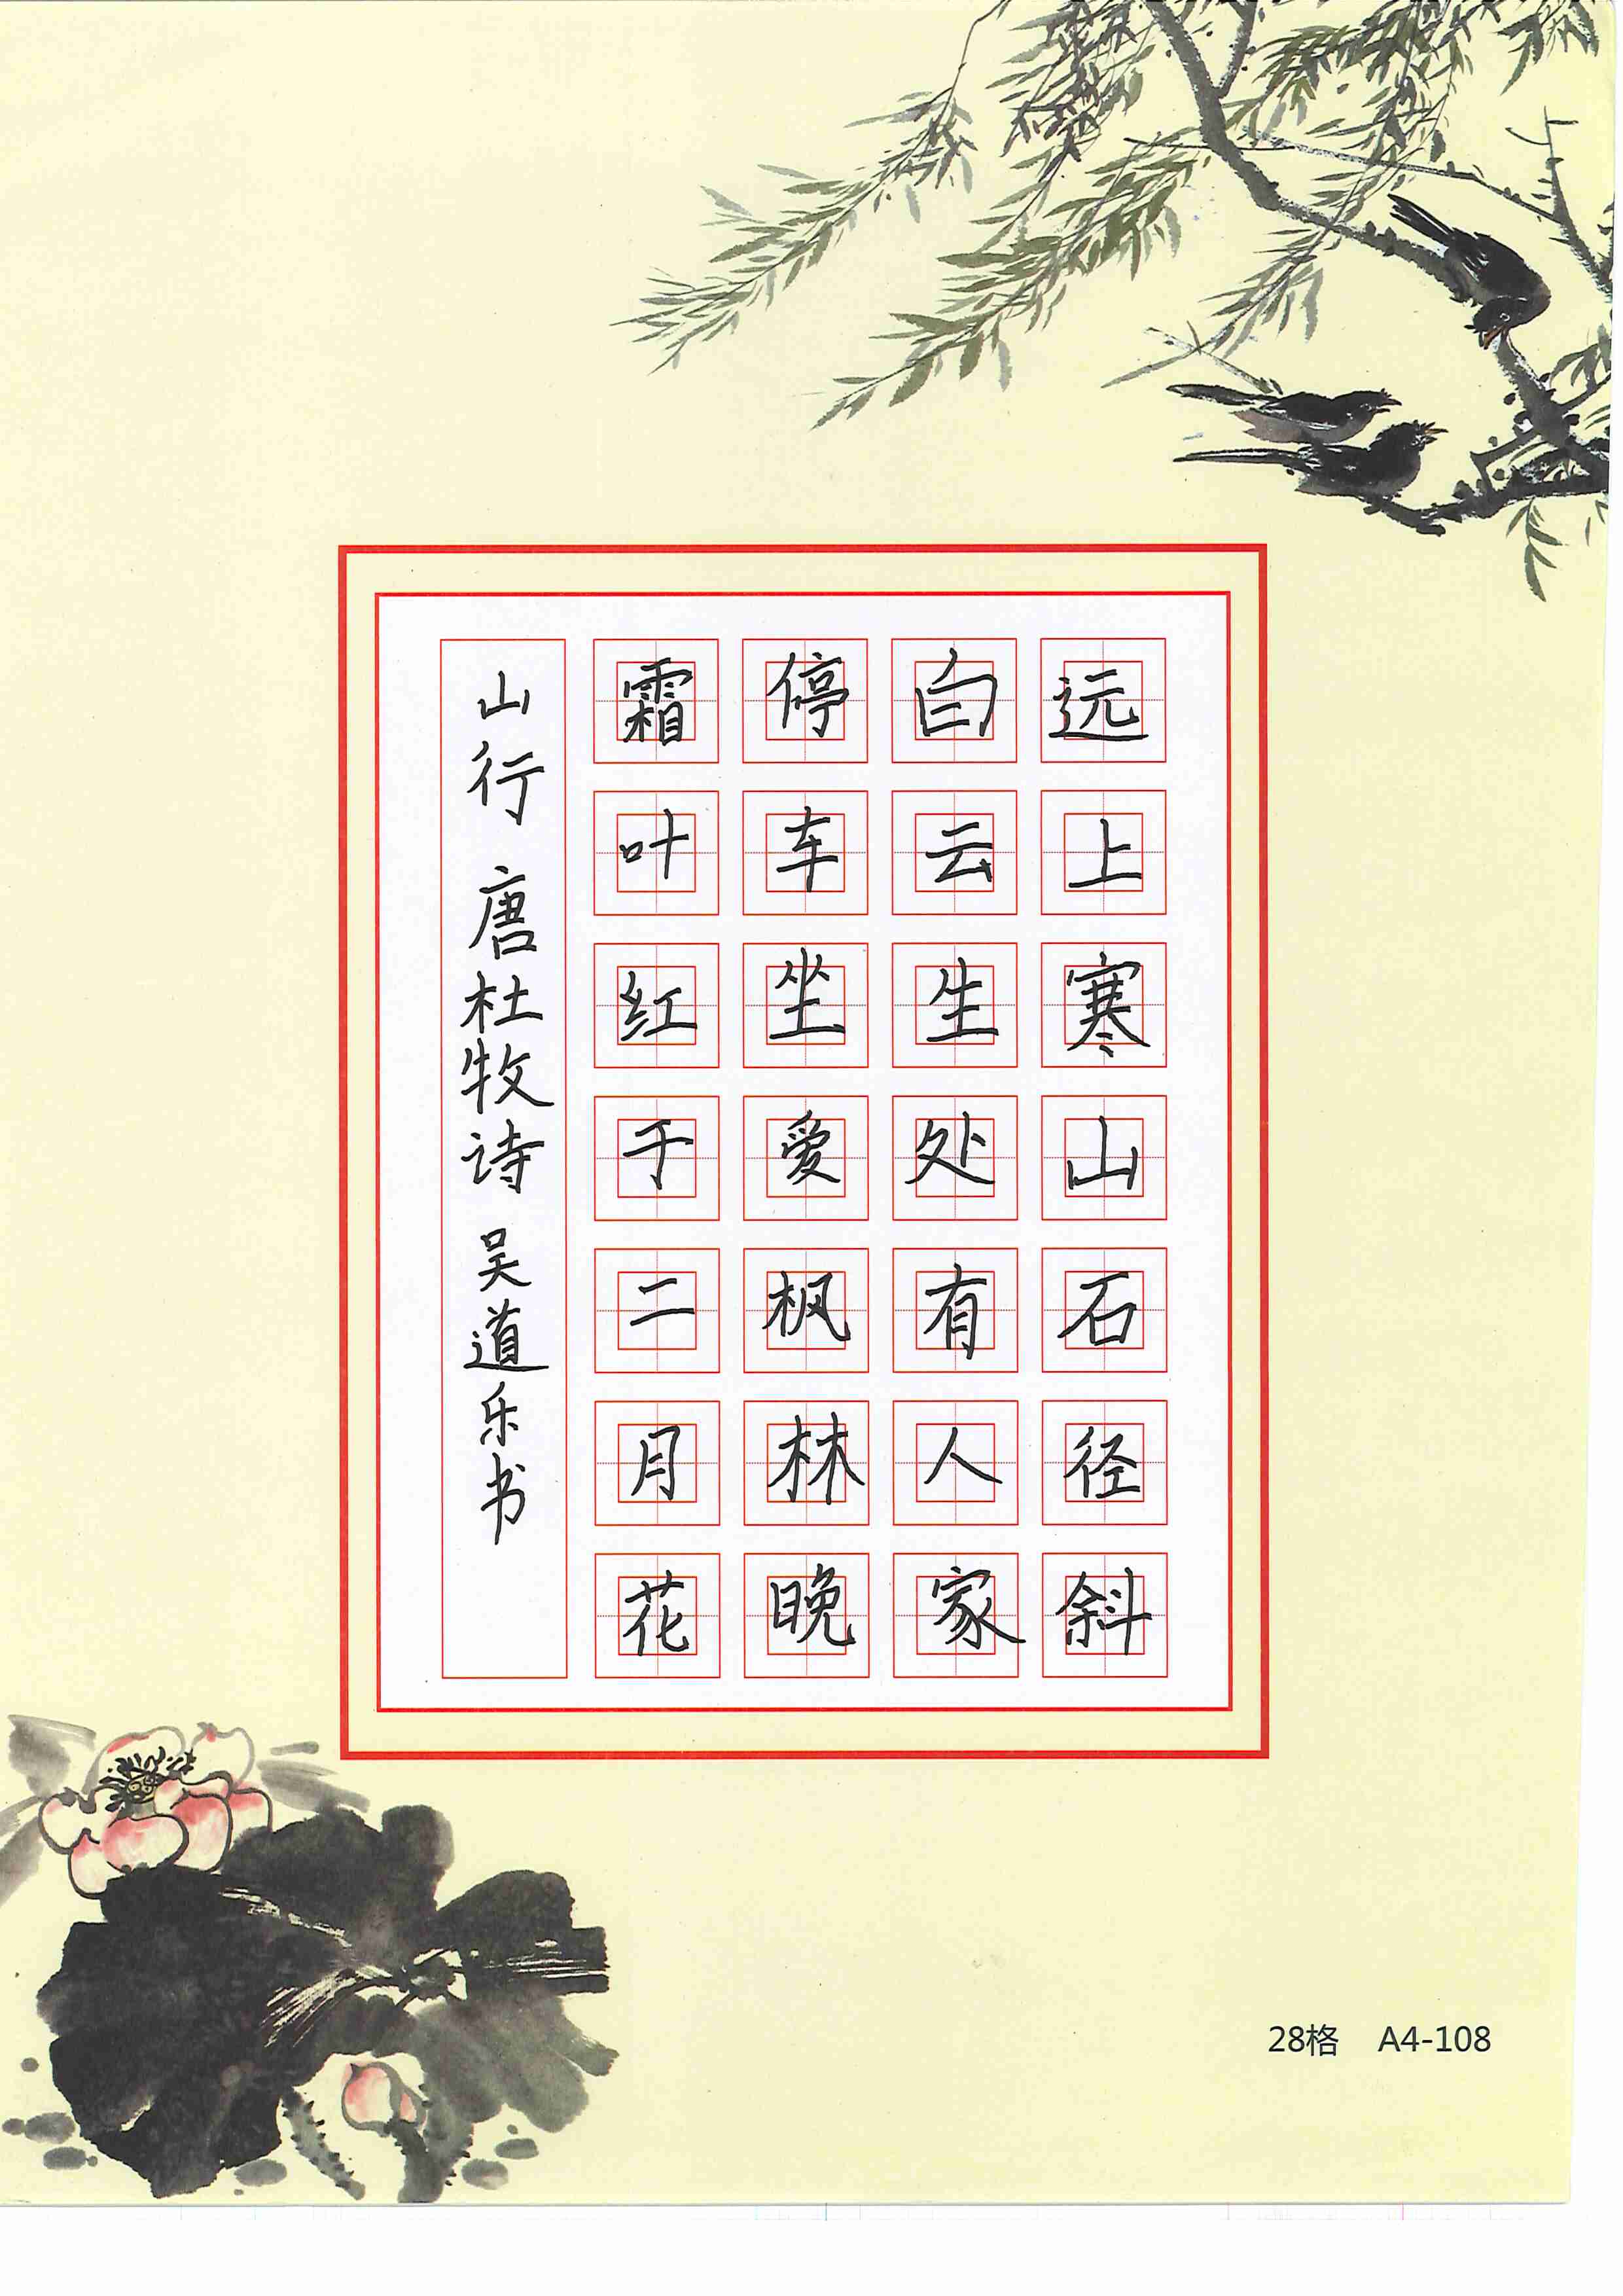 远上寒山石径斜
白云生处有人家
停车坐爱枫林晚
霜叶红于二月花
山行 唐杜牧诗 吴道乐书
28格 A4-108